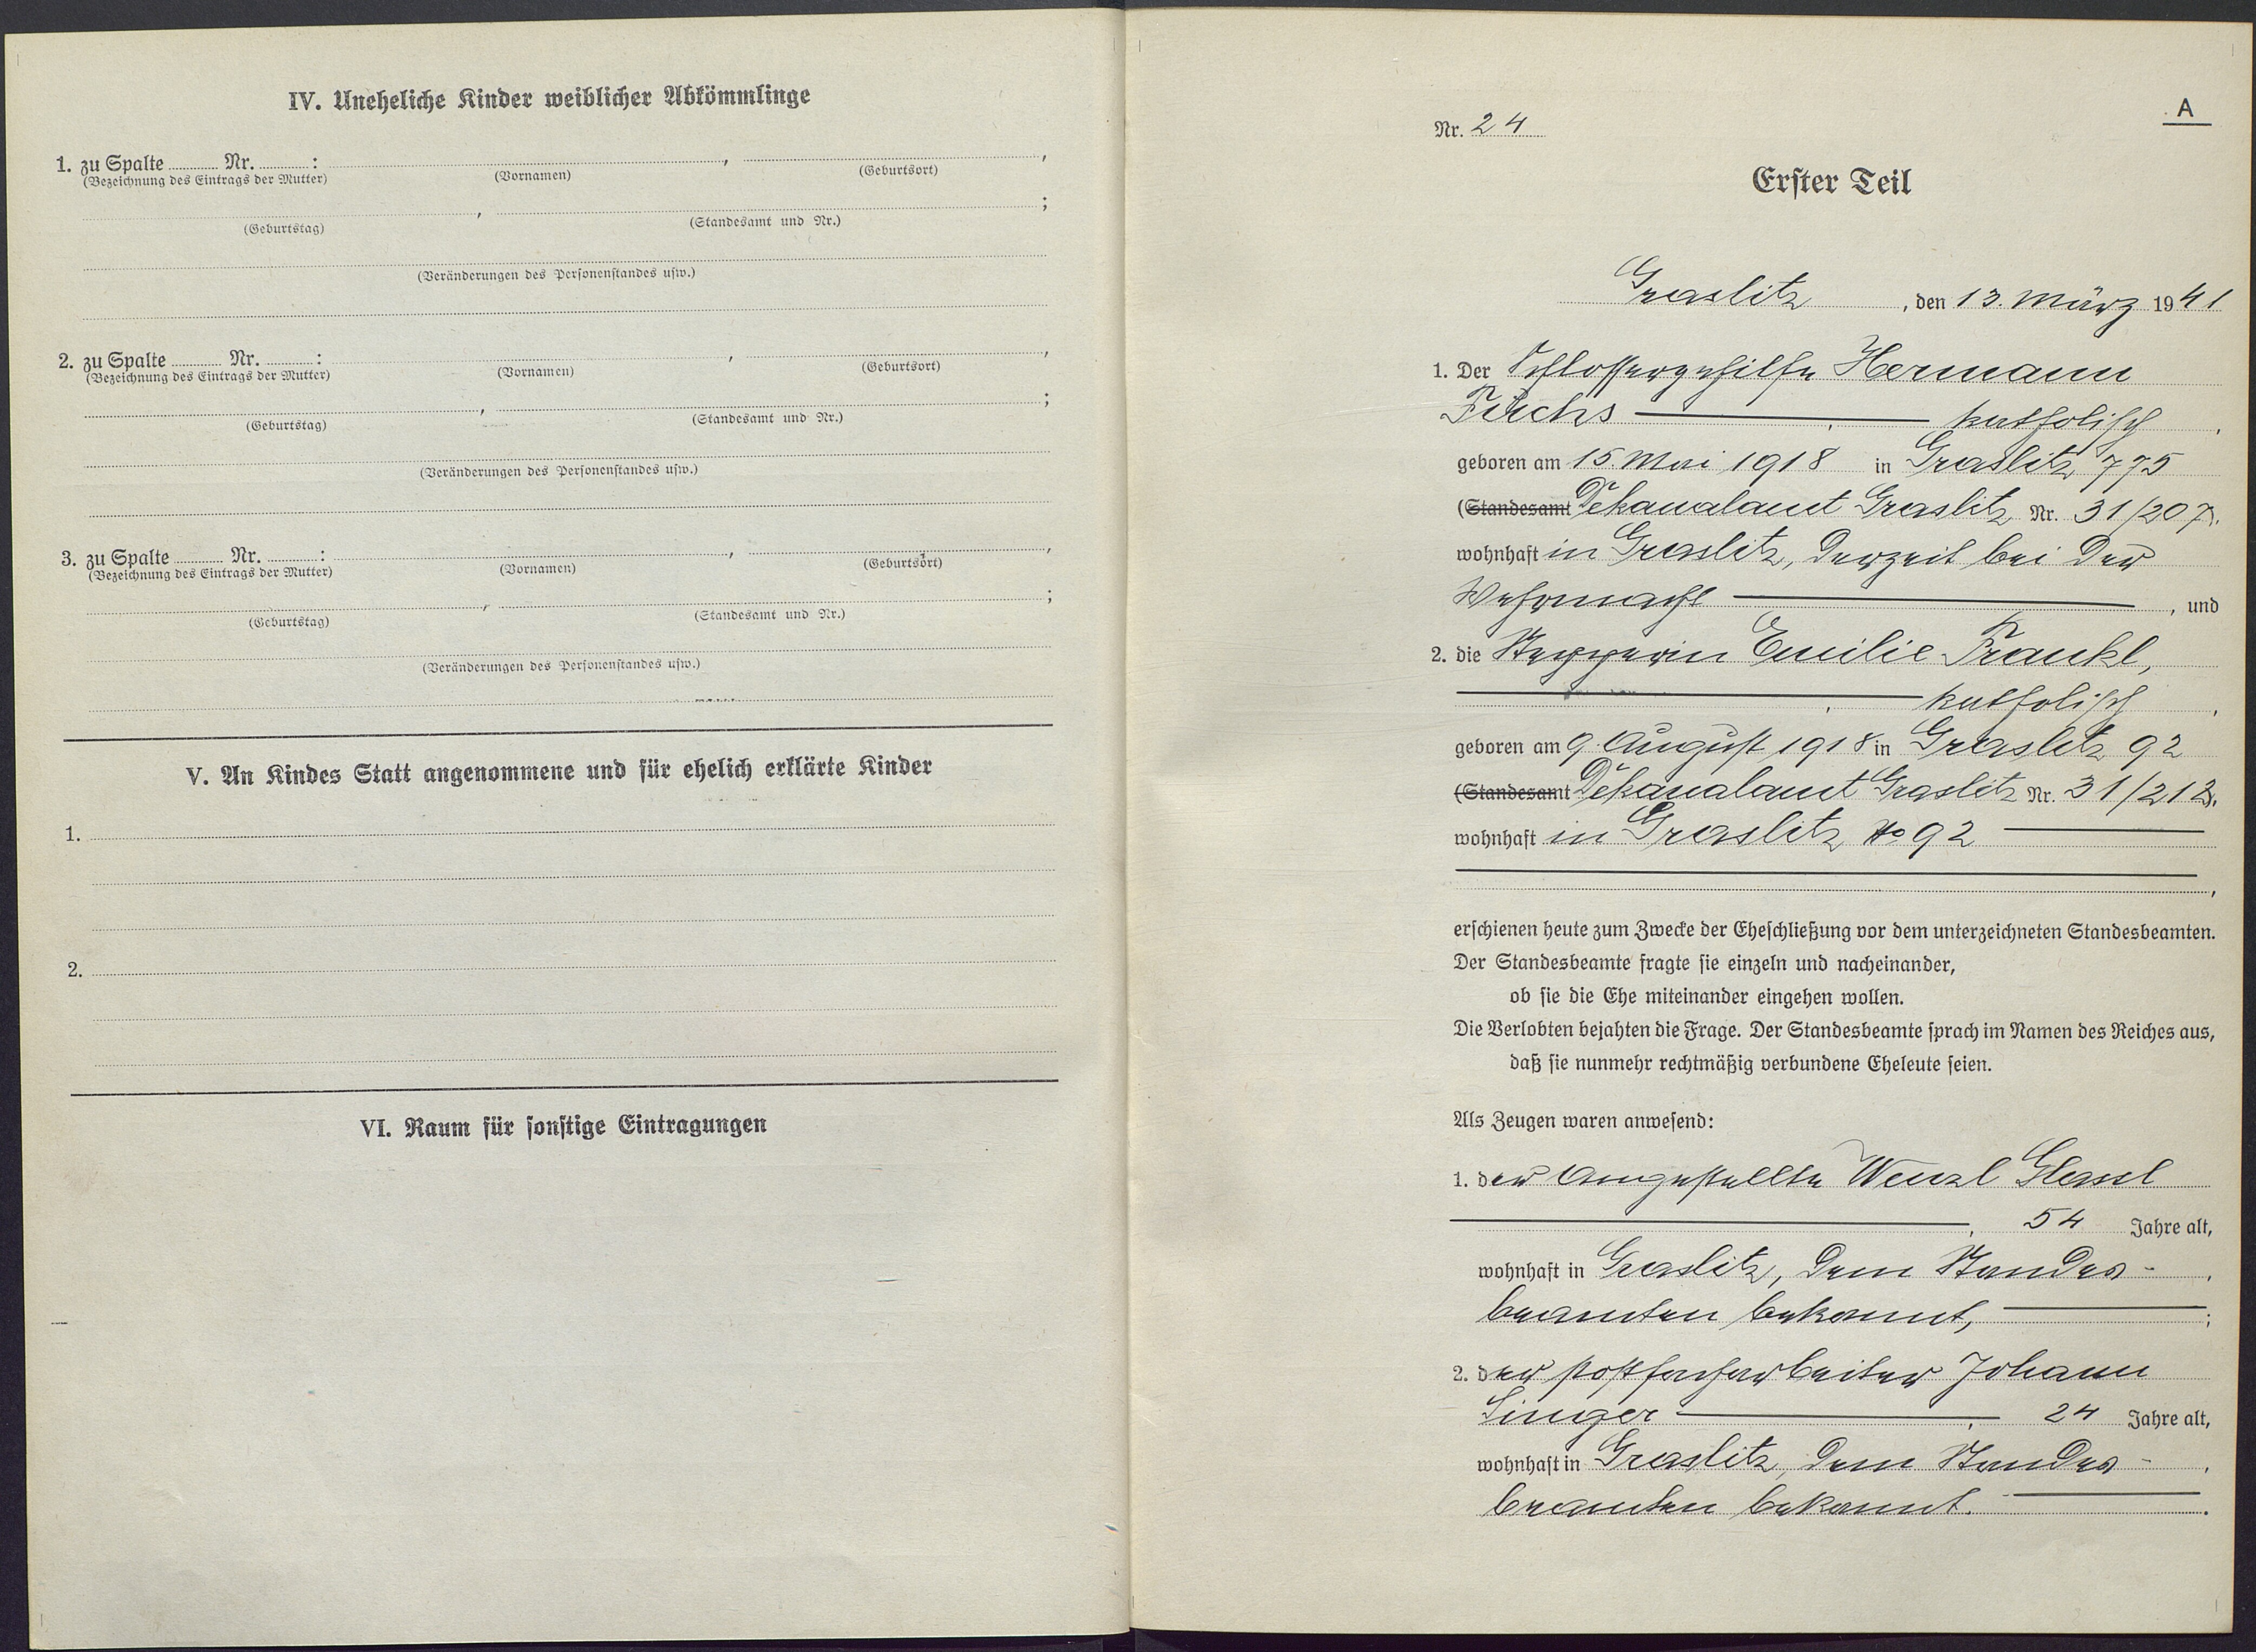 IV. Uneheliche Kinder weiblicher Abkömmlinge
1. zu Spalte ........ Nr. ........ : ........ , ........ ,
(Bezeichnung des Eintrags der Mutter) (Vornamen) (Geburtsort)
........ , ........ ;
(Geburtstag) (Standesamt und Nr.)
(Veränderungen des Personenstandes usw.)
2. zu Spalte ........ Nr. ........ : ........ , ........ ,
(Bezeichnung des Eintrags der Mutter) (Vornamen) (Geburtsort)
........ , ........ ;
(Geburtstag) (Standesamt und Nr.)
(Veränderungen des Personenstandes usw.)
3. zu Spalte ........ Nr. ........ : ........ , ........ ,
(Bezeichnung des Eintrags der Mutter) (Vornamen) (Geburtsort)
........ , ........ ;
(Geburtstag) (Standesamt und Nr.)
(Veränderungen des Personenstandes usw.)
V. An Kindes Statt angenommene und für ehelich erklärte Kinder
1.
2.
VI. Raum für sonstige Eintragungen
A
Nr. 24
Erster Teil
Graslitz, den 13. März 1941
1. Der Schlossergehilfe Hermann
Fuchs — , — katholisch ,
geboren am 15. Mai 1918 in Graslitz 775
(Standesamt Dekanalamt Graslitz Nr. 31/207),
wohnhaft in Graslitz, derzeit bei der
Wehrmacht — , und
2. die Stepperin Emilie Frankl,
— , — katholisch ,
geboren am 9. August 1918 in Graslitz 92
(Standesamt Dekanalamt Graslitz Nr. 31/212),
wohnhaft in Graslitz No 92 —
— ,
erschienen heute zum Zwecke der Eheschließung vor dem unterzeichneten Standesbeamten.
Der Standesbeamte fragte sie einzeln und nacheinander,
ob sie die Ehe miteinander eingehen wollen.
Die Verlobten bejahten die Frage. Der Standesbeamte sprach im Namen des Reiches aus,
daß sie nunmehr rechtmäßig verbundene Eheleute seien.
Als Zeugen waren anwesend:
1. der Angestellte Wenzl Glassl
— , 54 Jahre alt,
wohnhaft in Graslitz, dem Standes- ,
beamten bekannt, — ;
2. der Postfacharbeiter Johann
Singer — , 24 Jahre alt,
wohnhaft in Graslitz, dem Standes- ,
beamten bekannt. — .